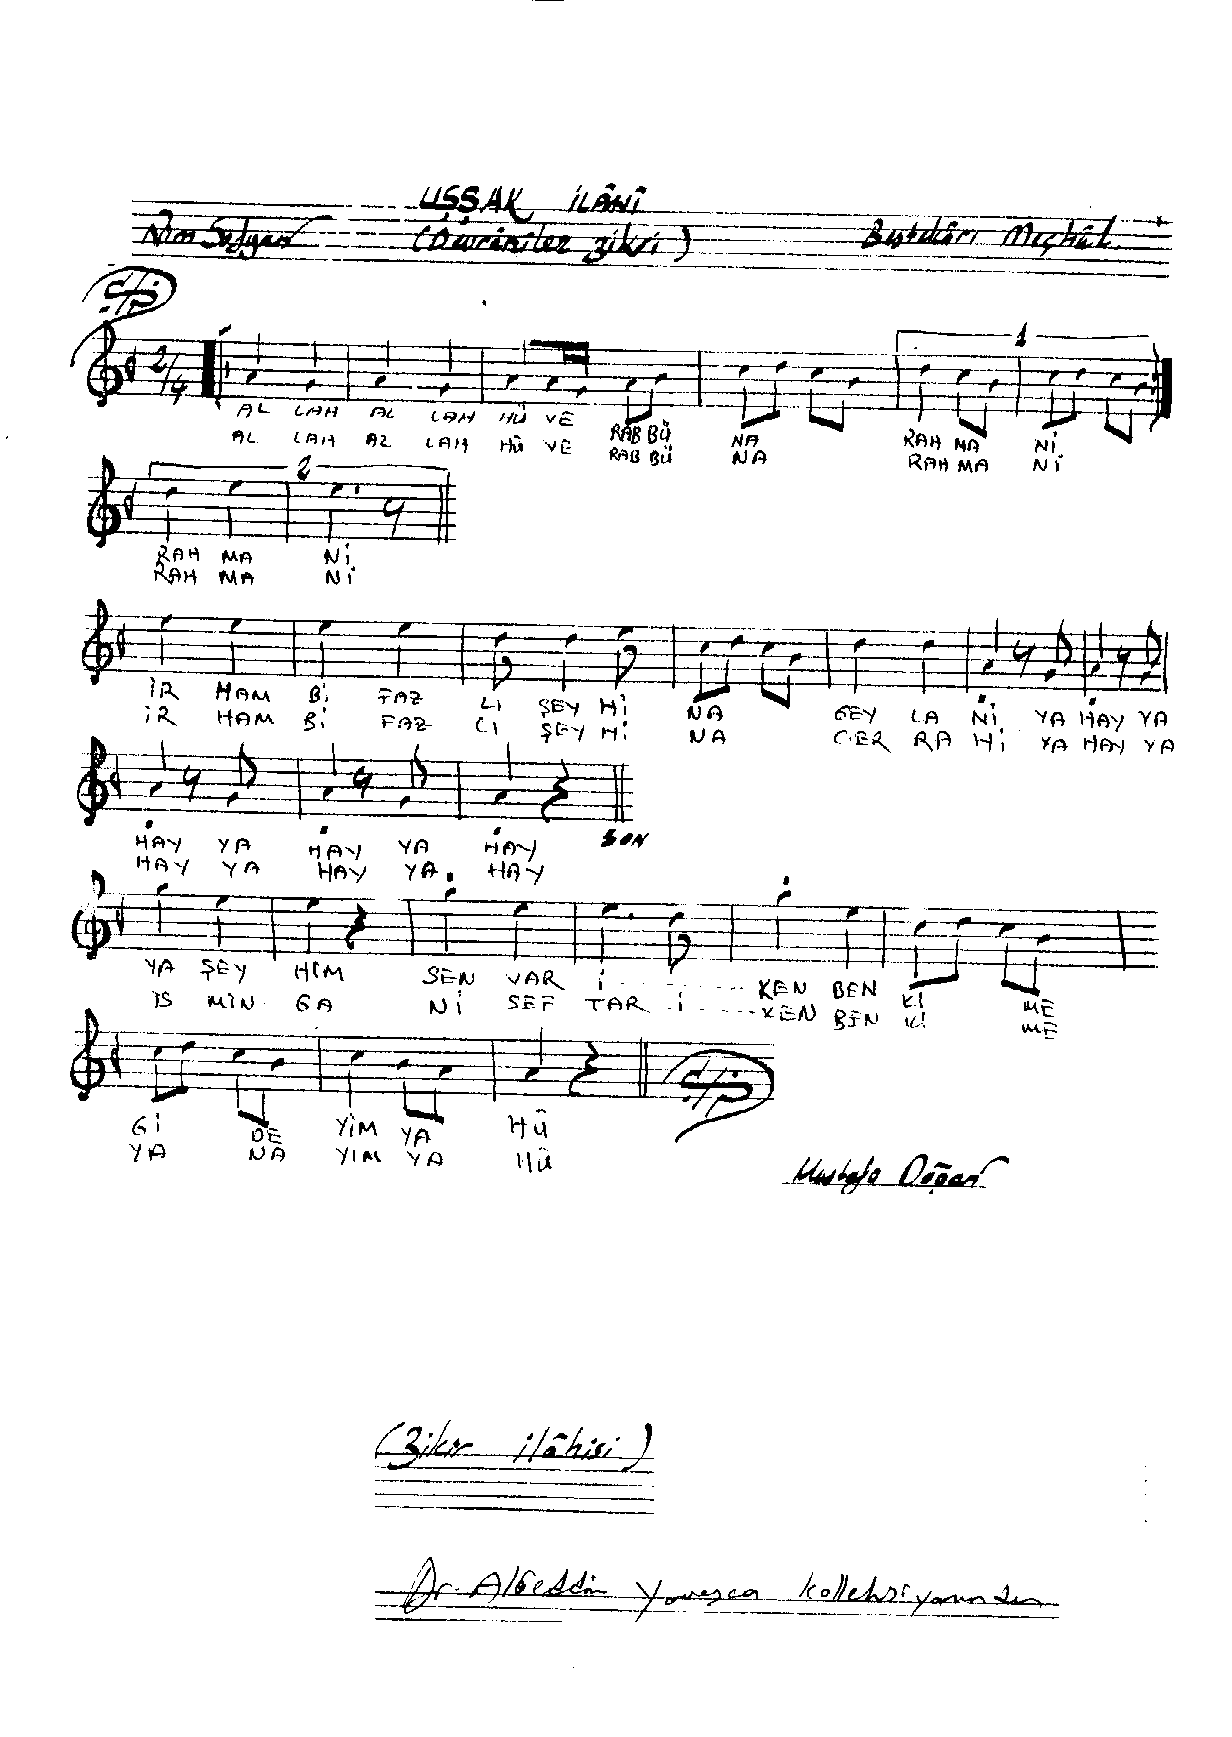 UŞŞAK İLÂHÎ
Nim Sofyan (Devrânîler Zikri) Bestekârı Meçhûl
2/4
1
AL LAH AL LAH HÛ VE RAB BÜ NA RAH MA Nİ
AL LAH AL LAH HÛ VE RAB BÜ NA RAH MA Nİ
2
RAH MA Nİ
RAH MA Nİ
İR HAM Bİ FAZ Lİ ŞEY Hİ NA GEY LA Nİ YA HAY YA
İR HAM Bİ FAZ Lİ ŞEY Hİ NA CER RA Hİ YA HAY YA
HAY YA HAY YA HAY SON
HAY YA HAY YA HAY
YA ŞEY HİM SEN VAR İ KEN BEN Kİ ME
İS MİN GA Nİ SEF TAR İ KEN BEN Kİ ME
Gİ DE YİM YA HÛ
YA NA YIM YA HÛ
Mustafa Doğan
(Zikir ilâhisi)
Dr. Alâeddin Yavaşca kolleksiyonundan